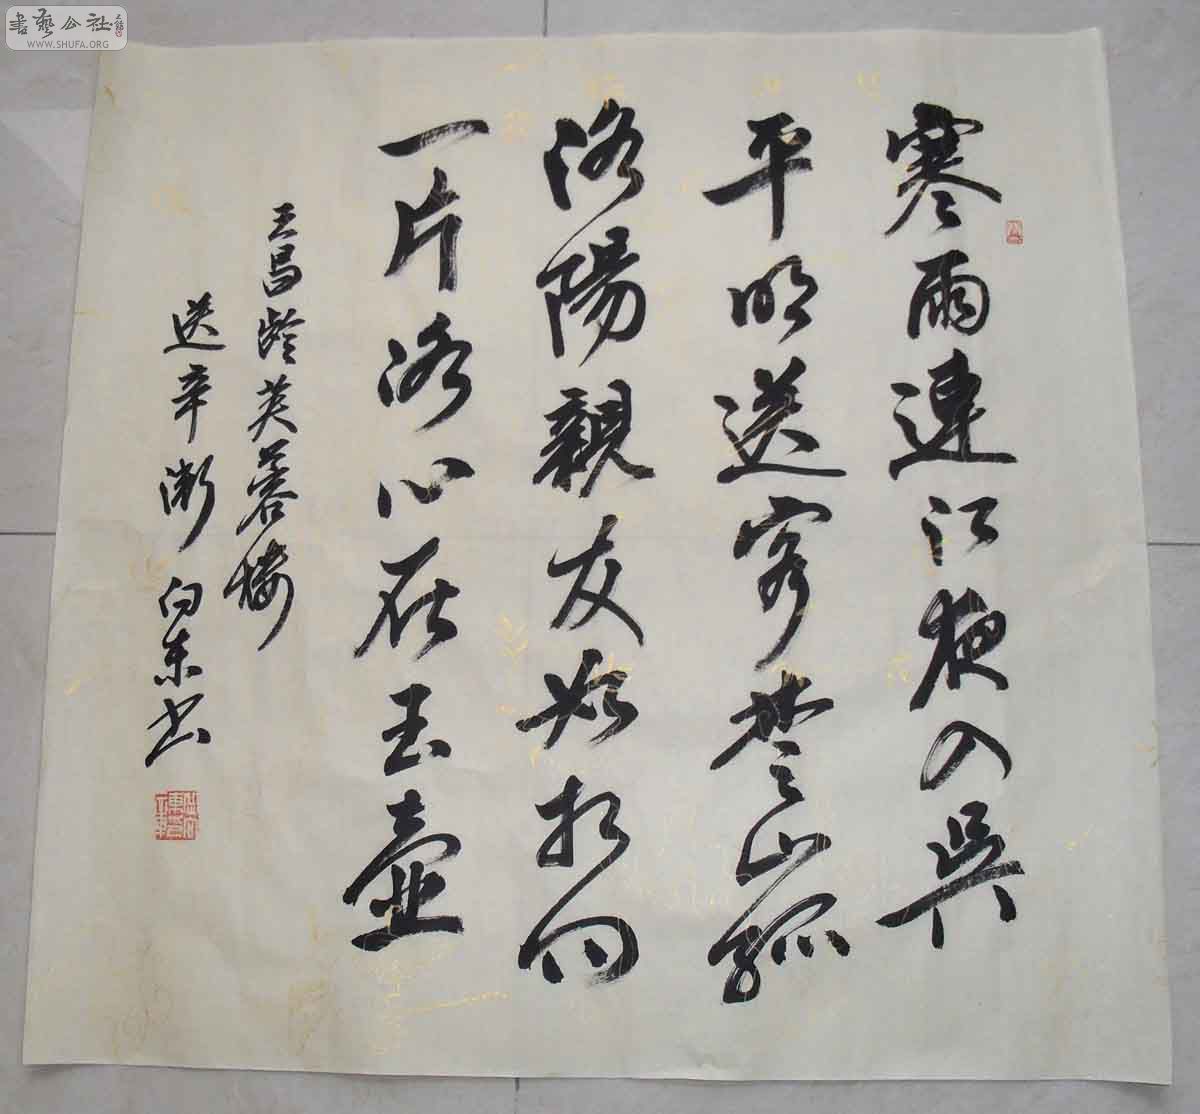 書藝公社
WWW.SHUFA.ORG
寒雨連江夜入吳
平明送客楚山孤
洛陽親友如相問
一片冰心在玉壺
王昌齡芙蓉樓
送辛漸 向東书